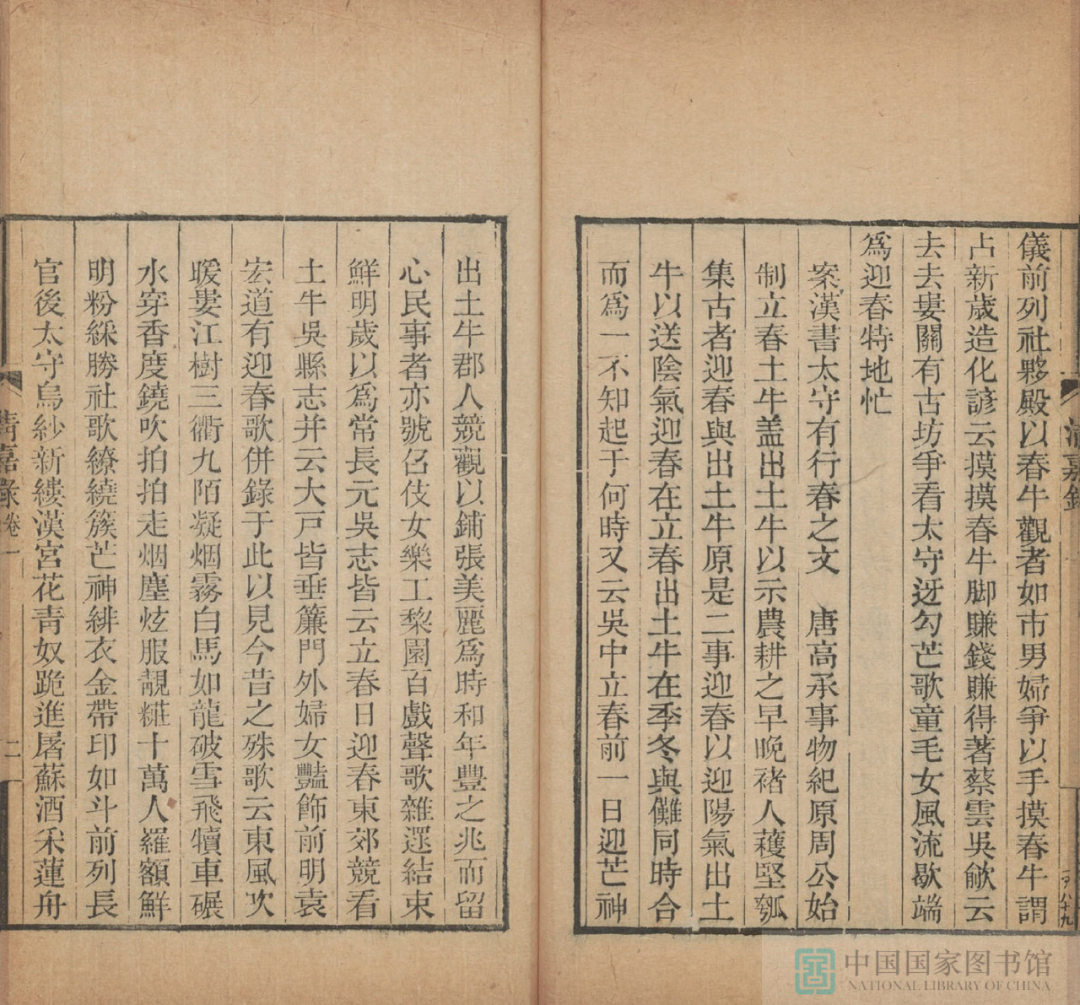 儀前列社夥殿以春牛觀者如市男婦爭以手摸春牛謂
占新歲造化諺云摸摸春牛脚賺錢賺得著蔡雲吳歈云
去去婁關有古坊爭看太守迓勾芒歌童毛女風流歇端
爲迎春特地忙
案漢書太守有行春之文　唐高承事物紀原周公始
制立春土牛盖出土牛以示農耕之早晚褚人蠖堅瓠
集古者迎春與出土牛原是二事迎春以迎陽氣出土
牛以送陰氣迎春在立春出土牛在季冬與儺同時合
而爲一不知起于何時又云吳中立春前一日迎芒神
出土牛郡人競觀以鋪張美麗爲時和年豐之兆而留
心民事者亦號召伎女樂工棃園百戲聲歌雜遝結束
鮮明歲以爲常長元吳志皆云立春日迎春東郊競看
土牛吳縣志并云大戸皆垂簾門外婦女豔飾前明袁
宏道有迎春歌併錄于此以見今昔之殊歌云東風吹
暖婁江樹三衢九陌凝烟霧白馬如龍破雪飛犢車碾
水穿香度鐃吹拍拍走烟塵炫服靚糚十萬人羅額鮮
明粉綵勝社歌繚繞簇芒神緋衣金帶印如斗前列長
官後太守烏紗新縷漢宮花靑奴跪進屠蘇酒采蓮舟
清嘉錄
清嘉錄 卷一
二
中国国家图书馆
NATIONAL LIBRARY OF CHINA